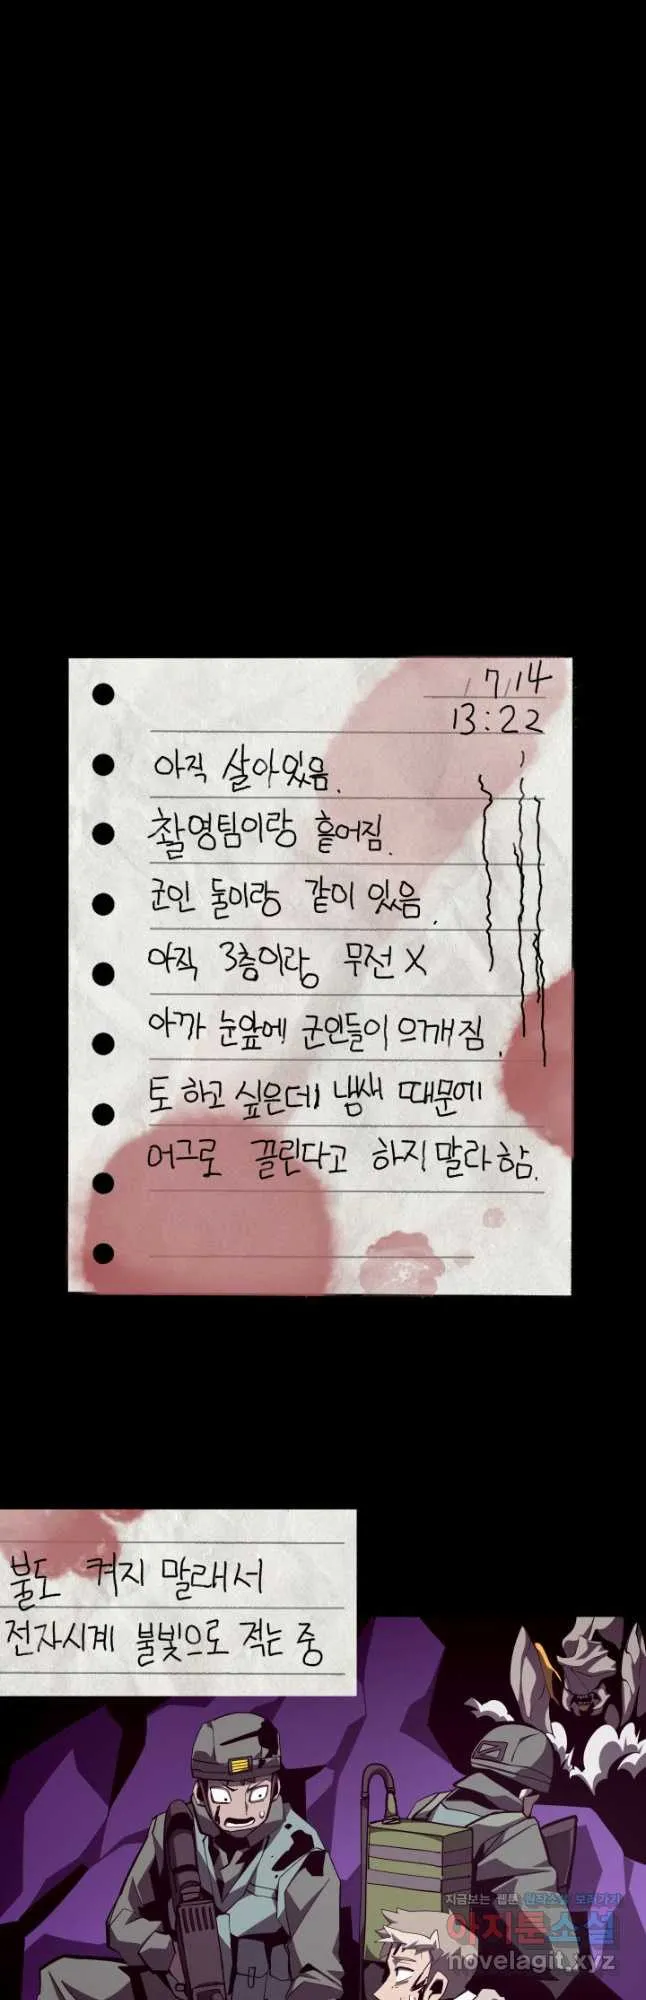 7/14
13:22
아직 살아있음.
촬영팀이랑 흩어짐.
군인 둘이랑 같이 있음.
아직 3층이랑 무전 X
아까 눈앞에 군인들이 으깨짐.
토 하고 싶은데 냄새 때문에
어그로 끌린다고 하지 말라 함.
불도 켜지 말래서
전자시계 불빛으로 적는 중
지금보는 웹툰 원작소설 보러가기
아지툰소설
novelagit.xyz